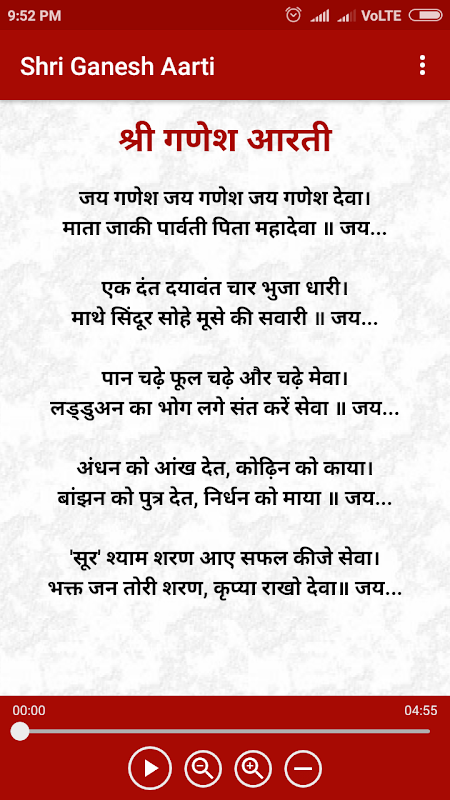 9:52 PM VoLTE
Shri Ganesh Aarti
श्री गणेश आरती
जय गणेश जय गणेश जय गणेश देवा।
माता जाकी पार्वती पिता महादेवा ॥ जय...
एक दंत दयावंत चार भुजा धारी।
माथे सिंदूर सोहे मूसे की सवारी ॥ जय...
पान चढ़े फूल चढ़े और चढ़े मेवा।
लड्डुअन का भोग लगे संत करें सेवा ॥ जय...
अंधन को आंख देत, कोढ़िन को काया।
बांझन को पुत्र देत, निर्धन को माया ॥ जय...
'सूर' श्याम शरण आए सफल कीजे सेवा।
भक्त जन तोरी शरण, कृप्या राखो देवा॥ जय...
00:00 04:55